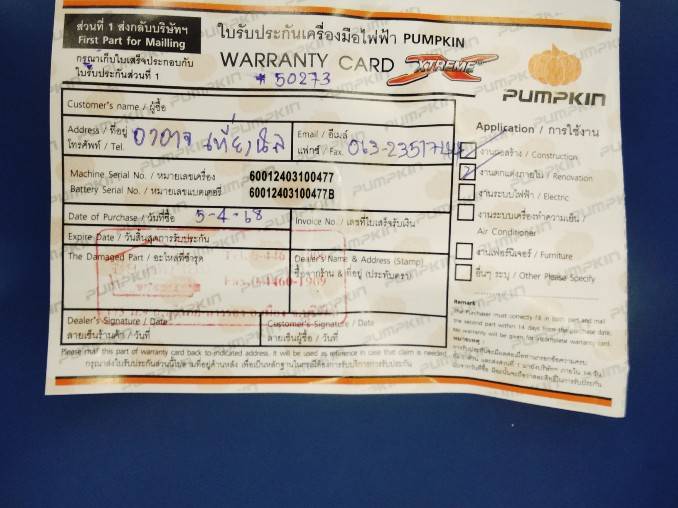 ส่วนที่ 1 ส่งกลับบริษัทฯ
First Part for Mailling
กรุณาเก็บใบเสร็จประกอบกับ
ใบรับประกันส่วนที่ 1
ใบรับประกันเครื่องมือไฟฟ้า PUMPKIN
WARRANTY CARD
XTREME
# 50273
PUMPKIN
Customer's name / ผู้ซื้อ
Address / ที่อยู่
โทรศัพท์ / Tel.
Email / อีเมล์
แฟกซ์ / Fax. 063-2351744
Machine Serial No. / หมายเลขเครื่อง 60012403100477
Battery Serial No. / หมายเลขแบตเตอรี่ 60012403100477B
Date of Purchase / วันที่ซื้อ 5-4-68
Invoice No. / เลขที่ใบเสร็จรับเงิน
Expire Date / วันสิ้นสุดการรับประกัน
The Damaged Part / อะไหล่ที่ชำรุด
Dealer's Name & Address (Stamp)
ชื่อจากร้าน & ที่อยู่ (ประทับตรา)
Dealer's Signature / Date
ลายเซ็นร้านค้า / วันที่
Customer's Signature / Date
ลายเซ็นผู้ซื้อ / วันที่
Application / การใช้งาน
งานก่อสร้าง / Construction
งานตกแต่งภายใน / Renovation
งานระบบไฟฟ้า / Electric
งานระบบเครื่องทำความเย็น /
Air Conditioner
งานเฟอร์นิเจอร์ / Furniture
อื่นๆ ระบุ / Other Please Specify
Remark
The Purchaser must correctly fill in both part and mail
the second part within 14 days from the purchase date,
หมายเหตุ :
Please mail this part of warranty card back to indicated address. It will be used as reference in case that claim is needed
กรุณาส่งใบรับประกันส่วนนี้ไปตามที่อยู่ด้านหลัง เพื่อเป็นหลักฐานในกรณีต้องการรับบริการการรับประกัน